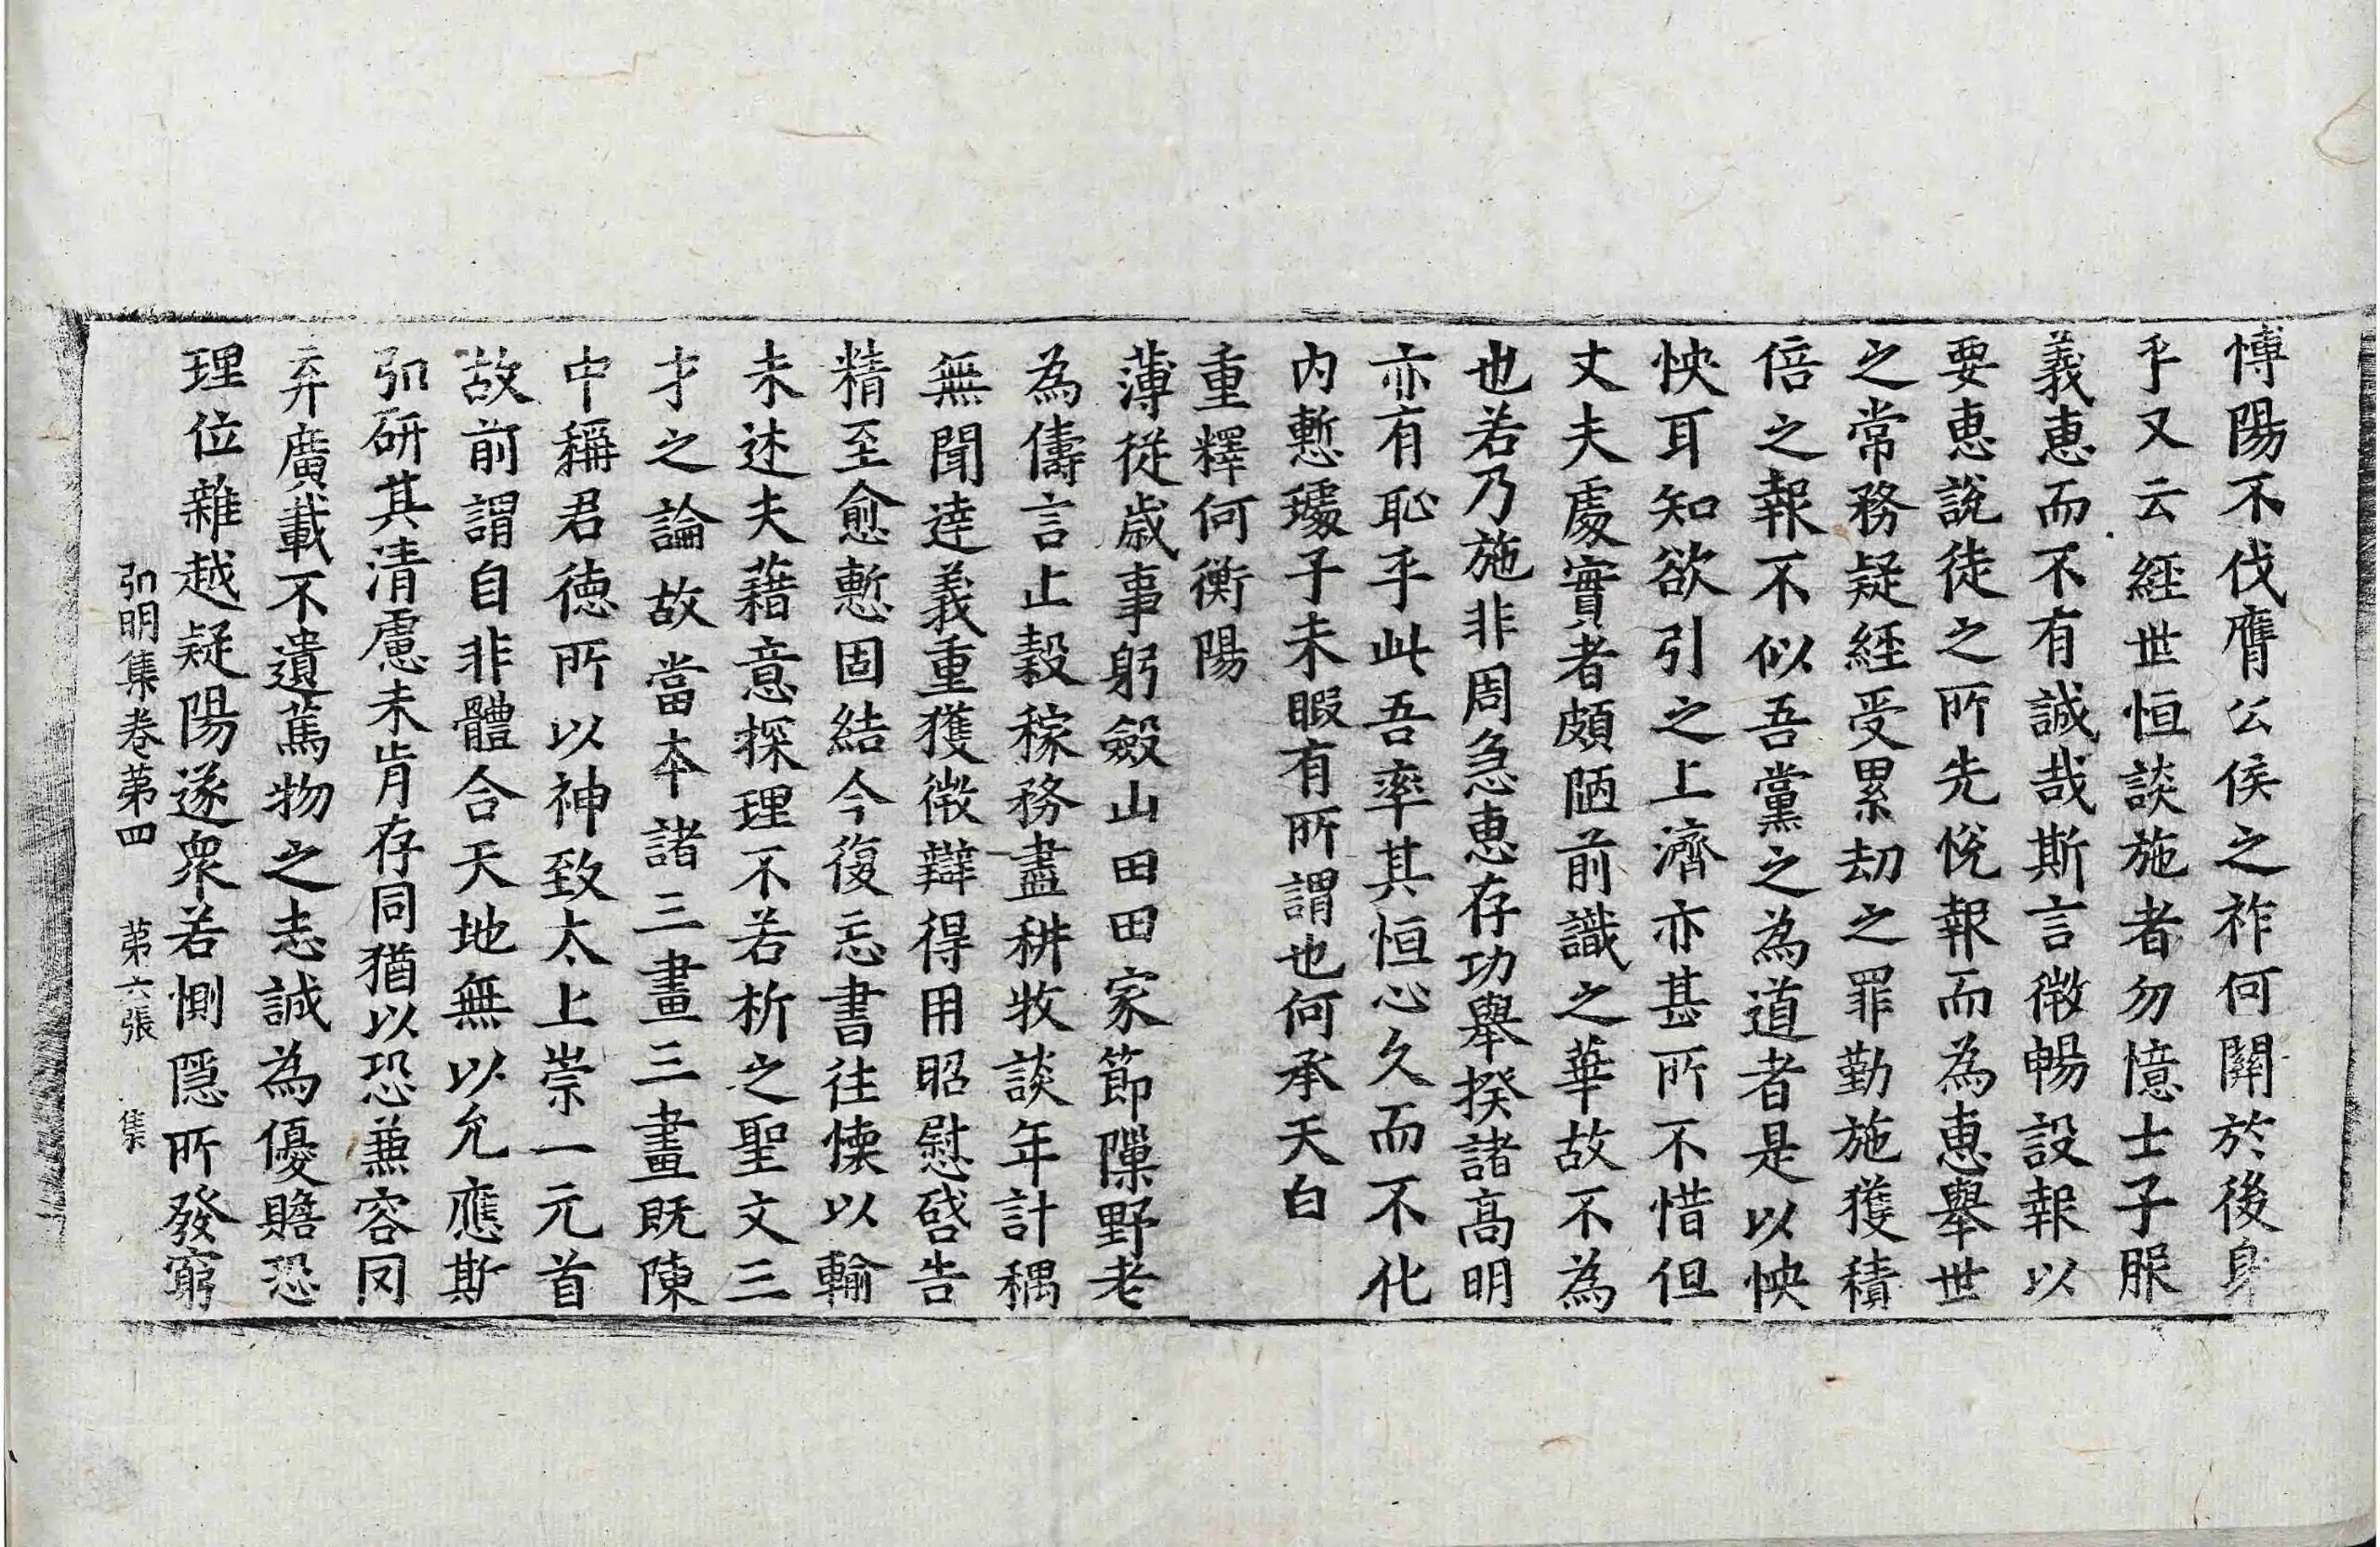 愽陽不伐膺公侯之祚何關於後身
乎又云經世恒談施者勿憶士子服
義惠而不有誠哉斯言微暢設報以
要惠說徒之所先悅報而為惠舉世
之常務疑經受累劫之罪勤施獲積
倍之報不似吾黨之為道者是以怏
怏耳知欲引之上濟亦甚所不惜但
丈夫處實者頗陋前識之華故不為
也若乃施非周急惠存功舉揆諸高明
亦有恥乎此吾率其恒心久而不化
內慙璩子未暇有所謂也何承天白
重釋何衡陽
薄從歲事躬斂山田田家節隟野老
為儔言止穀稼務盡耕牧談年計耦
無聞達義重獲微辯得用昭慰啓告
精至愈慙固結今復忘書往懷以輸
未述夫藉意探理不若析之聖文三
才之論故當本諸三畫三畫既陳
中稱君德所以神致太上崇一元首
故前謂自非體合天地無以允應斯
弘研其清慮未肯存同猶以恐兼容罔
弃廣載不遺篤物之志誠為優贍恐
理位雜越疑陽遂衆若惻隱所發窮
弘明集卷第四 第六張 集